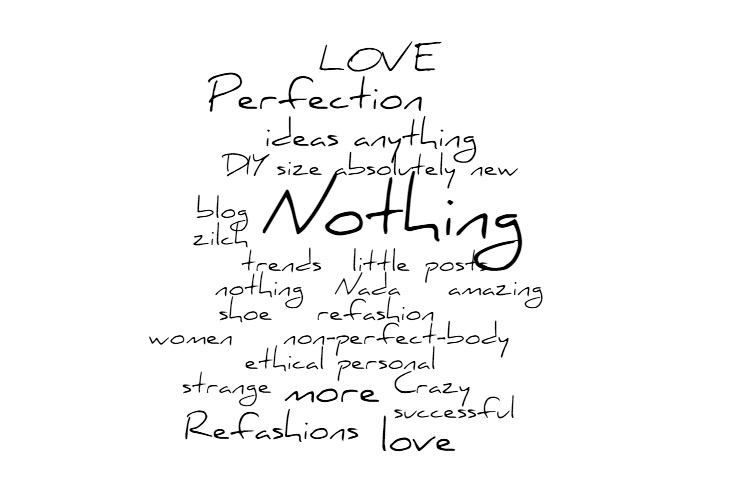 LOVE
Perfection
ideas anything
DIY size absolutely new
blog Nothing
zilch
trends little posts
nothing Nada amazing
shoe refashion
women non-perfect-body
ethical personal
strange more Crazy
successful
Refashions love